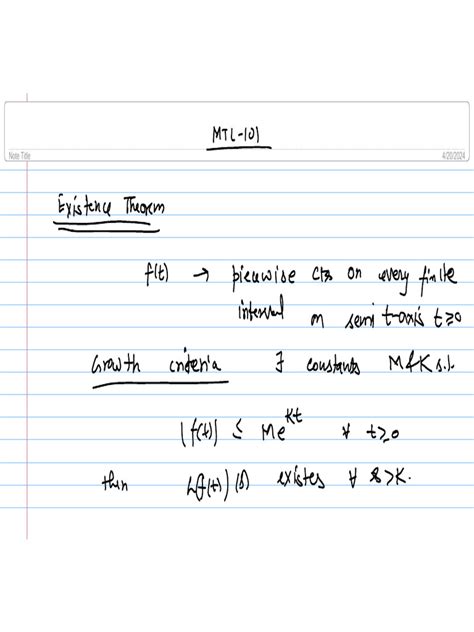 MTL-101
Note Title
4/20/2024
Existence Theorem
f(t) → piecewise cts on every finite
interval on semi t-axis t≥0
Growth criteria ∃ constants M & K s.t.
|f(t)| ≤ Me^{Kt} ∀ t≥0
then L(f(t))(s) existes ∀ s>K.